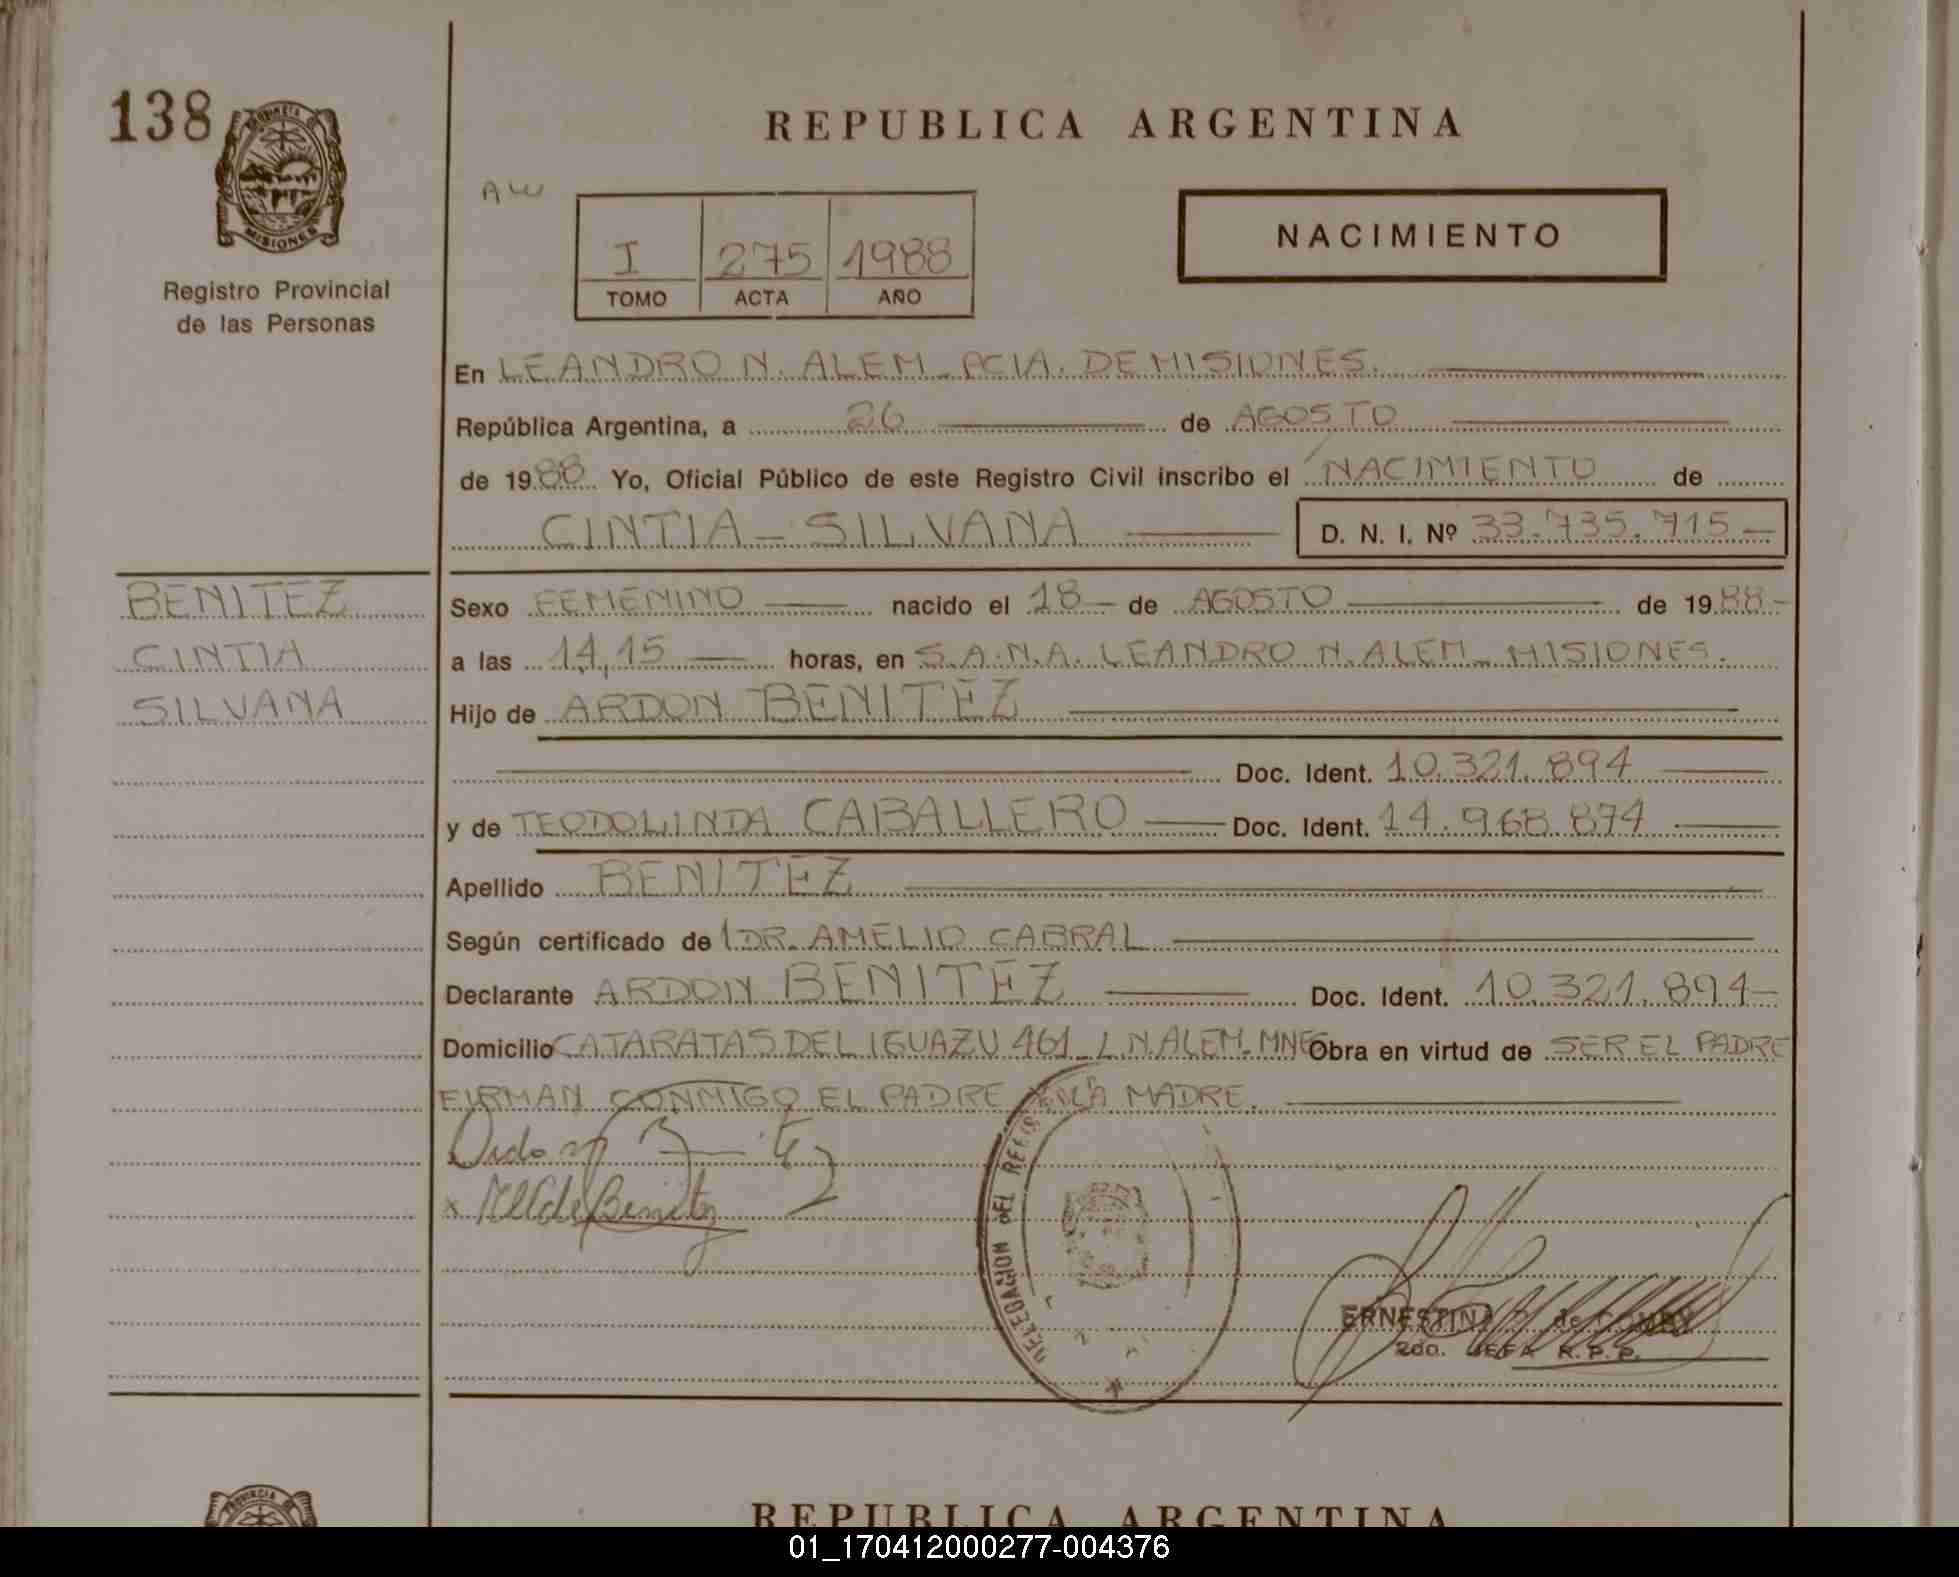 138
PROVINCIA DE
MISIONES
Registro Provincial
de las Personas
REPUBLICA ARGENTINA
AW
I 275 1988
TOMO ACTA AÑO
NACIMIENTO
En LEANDRO N. ALEM - PCIA. DE MISIONES.
República Argentina, a 26 de AGOSTO
de 1988 Yo, Oficial Público de este Registro Civil inscribo el NACIMIENTO de
CINTIA - SILVANA D. N. I. Nº 33.735.715.-
BENITEZ
CINTIA
SILVANA
Sexo FEMENINO nacido el 18 - de AGOSTO de 1988.-
a las 14,15 horas, en S.A.N.A. LEANDRO N. ALEM - MISIONES.
Hijo de ARDON BENITEZ
Doc. Ident. 10.321.894
y de TEODOLINDA CABALLERO Doc. Ident. 14.968.874
Apellido BENITEZ
Según certificado de DR. AMELIO CABRAL
Declarante ARDON BENITEZ Doc. Ident. 10.321.894-
Domicilio CATARATAS DEL IGUAZU 461 - L.N. ALEM - MNES Obra en virtud de SER EL PADRE
FIRMAN CONMIGO EL PADRE Y LA MADRE.
DELEGACION DEL REGIS
de Benitez
ERNESTINA P. de
2do. JEFA R.P.P.
PROVINCIA DE
REPUBLICA ARGENTINA
01_170412000277-004376